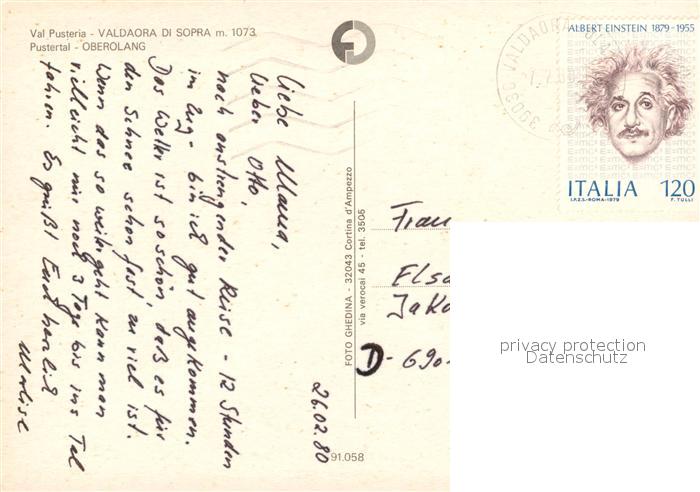 Val Pusteria - VALDAORA DI SOPRA m. 1073
Pustertal - OBEROLANG
Liebe Mama,
lieber Otto,
nach anstrengender Reise - 12 Stunden
im Zug - bin ich gut angekommen.
Das Wetter ist so schön, daß es für
den Schnee schon fast zu viel ist.
Wenn das so weitergeht kann man
vielleicht nur noch 3 Tage bis ins Tal
fahren. Es grüßt Euch herzlich
Marlise
26.02.80
FOTO GHEDINA - 32043 Cortina d'Ampezzo
via verocai 45 - tel. 3505
91.058
39030 VALDAORA
ALBERT EINSTEIN 1879-1955
ITALIA 120
I.P.Z.S.-ROMA-1979 F. TULLI
Frau
Elsa
Jako
D-690
privacy protection
Datenschutz